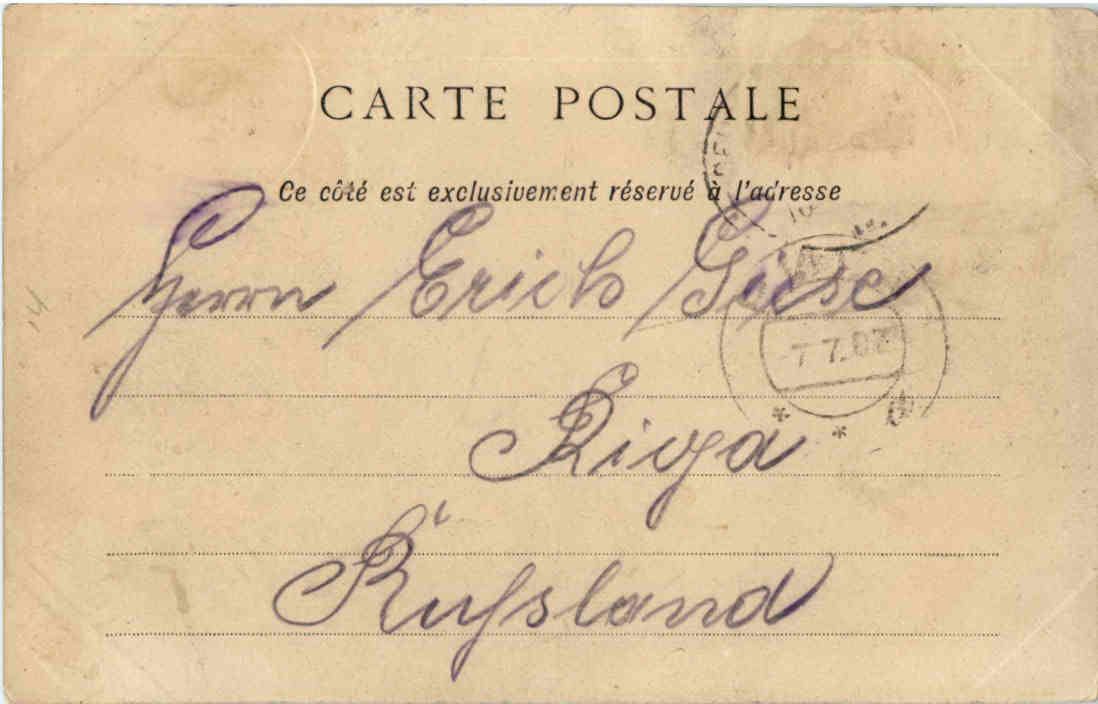 CARTE POSTALE
Ce côté est exclusivement réservé à l'adresse
Herrn Erich
7.7.02
Riga
Russland